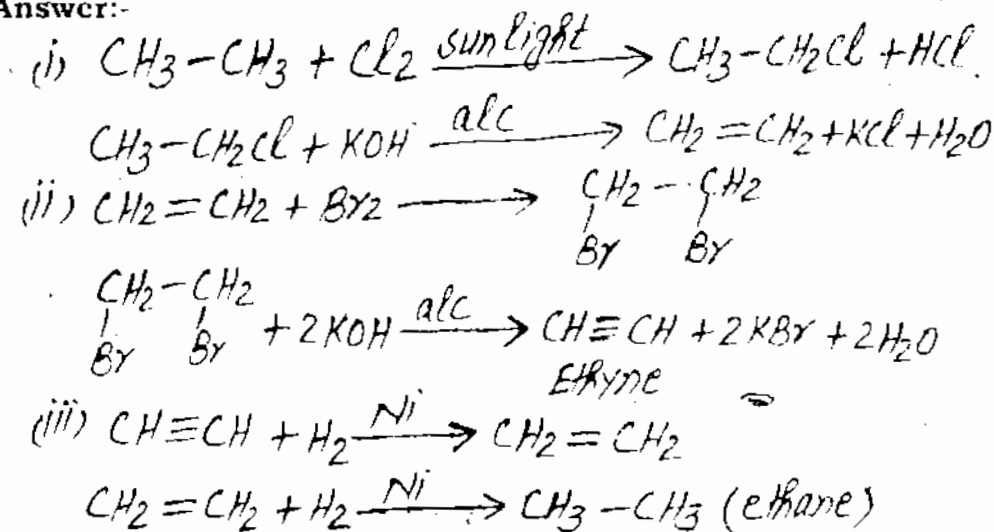 Answer:-
(i) CH3-CH3 + Cl2 sunlight → CH3-CH2Cl + HCl.
CH3-CH2Cl + KOH alc → CH2=CH2+KCl+H2O
(ii) CH2=CH2 + Br2 → CH2-CH2
Br Br
CH2-CH2
Br Br + 2KOH alc → CH≡CH + 2KBr + 2H2O
Ethyne
(iii) CH≡CH + H2 Ni → CH2=CH2
CH2=CH2 + H2 Ni → CH3-CH3 (ethane)